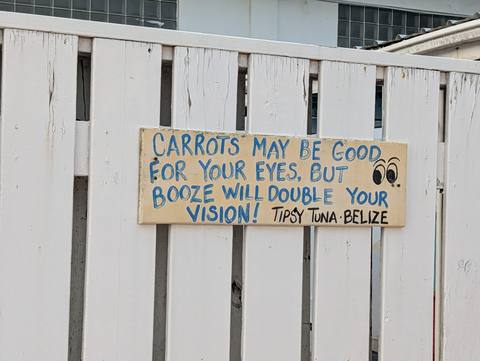 CARROTS MAY BE GOOD
FOR YOUR EYES, BUT
BOOZE WILL DOUBLE YOUR
VISION! TIPSY TUNA · BELIZE